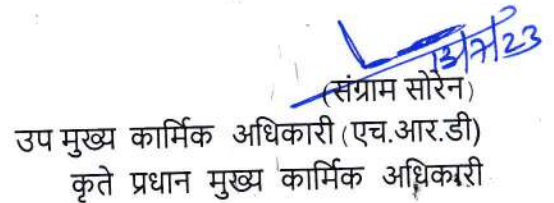 13/7/23
(संग्राम सोरेन)
उप मुख्य कार्मिक अधिकारी (एच.आर.डी)
कृते प्रधान मुख्य कार्मिक अधिकारी